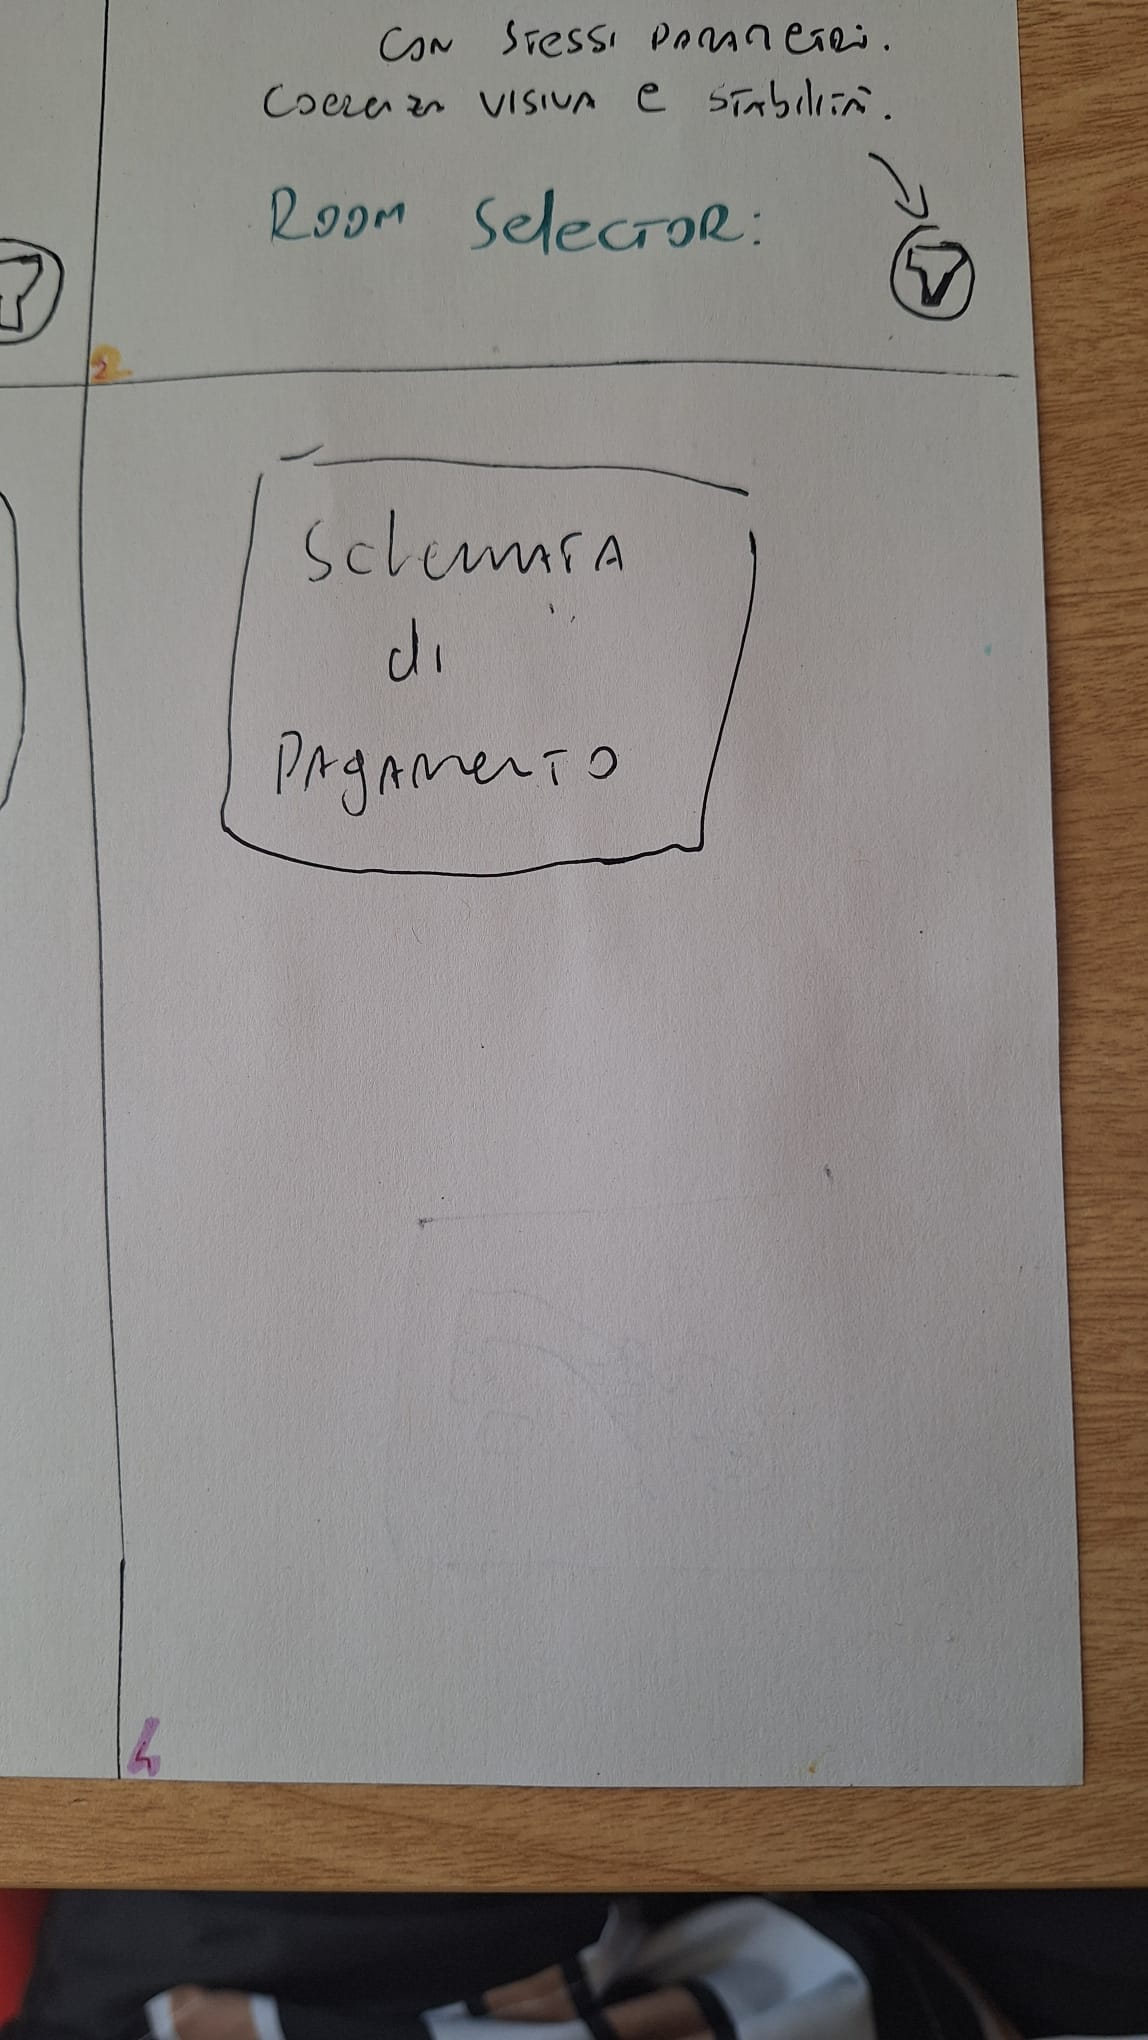 CON STESSI PARAMETRI.
COERENZA VISIVA E STABILITÀ.
ROOM SELECTOR:
2
SCHERMATA
di
PAGAMENTO
4